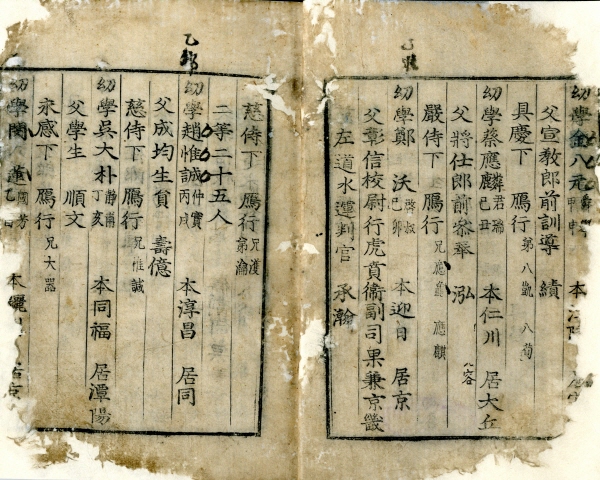 幼學金八元 本江
父宣敎郎前訓導 績
具慶下 鴈行 弟八凱
幼學蔡應麟 君瑞 己丑 本仁川 居大丘
父將仕郎前參奉 泓
嚴侍下 鴈行 兄應 應麒
幼學鄭 沃 啓叔 己卯 本迎日 居京
父彰信校尉行虎賁衛副司果兼京畿
左道水運判官 承瀚
慈侍下 鴈行 兄濩 弟
二等二十五人
幼學趙惟誠 仲實 丙戌 本淳昌 居同
父成均生員 壽億
慈侍下 鴈行 兄惟諴
幼學吳大朴 丁亥 本同福 居潭陽
父學生 順文
永感下 鴈行 兄大器
幼學閔 國芳 乙 本驪 居京